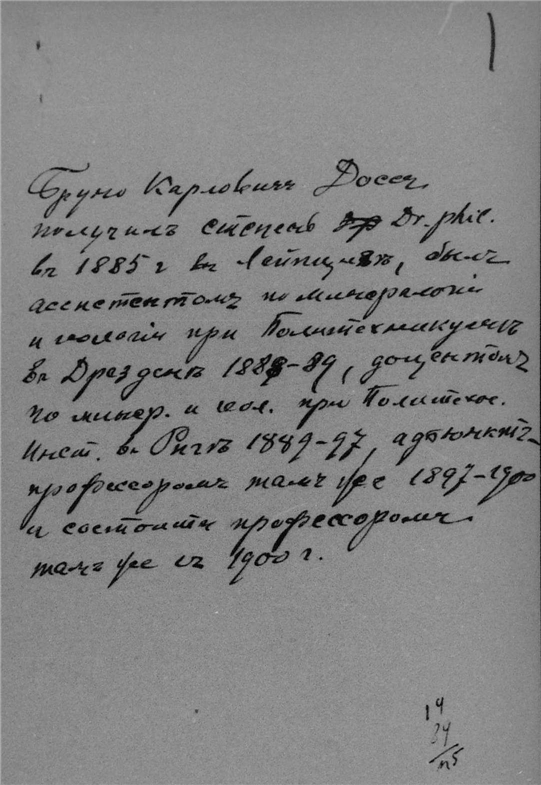 Бруно Карловичъ Доссъ
получилъ степень Dr. phil.
въ 1885 г въ Лейпцигѣ, былъ
ассистентомъ по минералогіи
и геологіи при Политехникумѣ
въ Дрезденѣ 1888-89, доцентомъ
по минер. и геол. при Политехн.
Инст. въ Ригѣ 1889-97, адъюнктъ-
профессоромъ тамъ же 1897-1900
и состоитъ профессоромъ
тамъ же съ 1900 г.
14
84